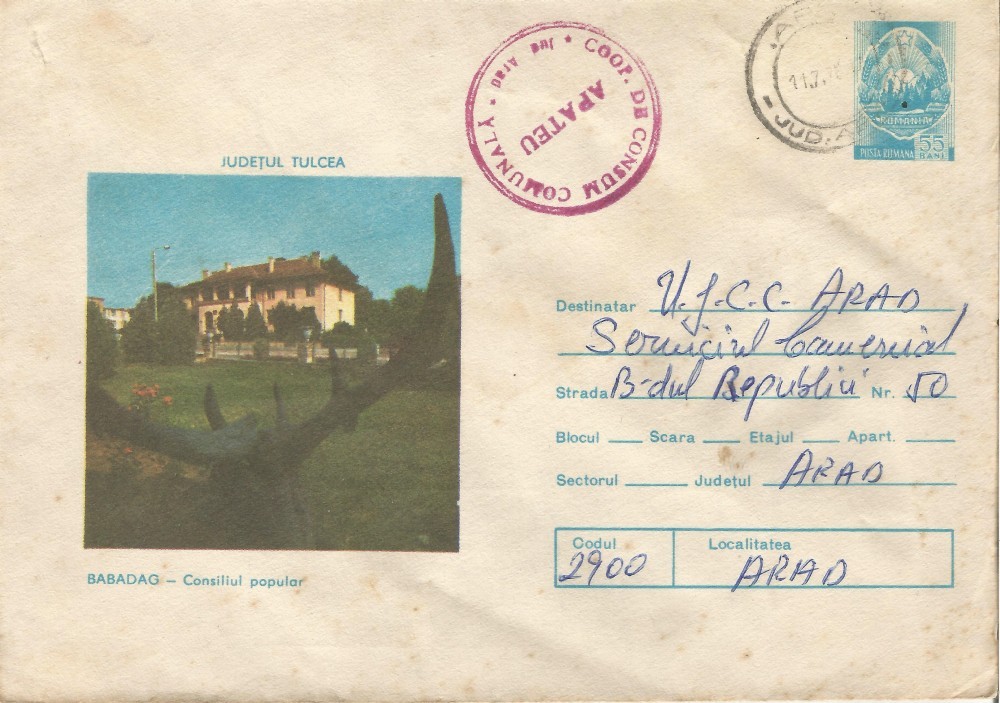 JUDEȚUL TULCEA
BABADAG — Consiliul popular
COOP. DE CONSUM COMUNALĂ * Jud Arad *
APATEU
11.7.
JUD. A
ROMANIA
POSTA ROMANA 55 BANI
Destinatar U.J.C.C. ARAD
Serviciul Comercial
Strada B-dul Republicii Nr. 50
Blocul ___ Scara ___ Etajul ___ Apart. ___
Sectorul ___ Județul ARAD
Codul Localitatea
2900 ARAD